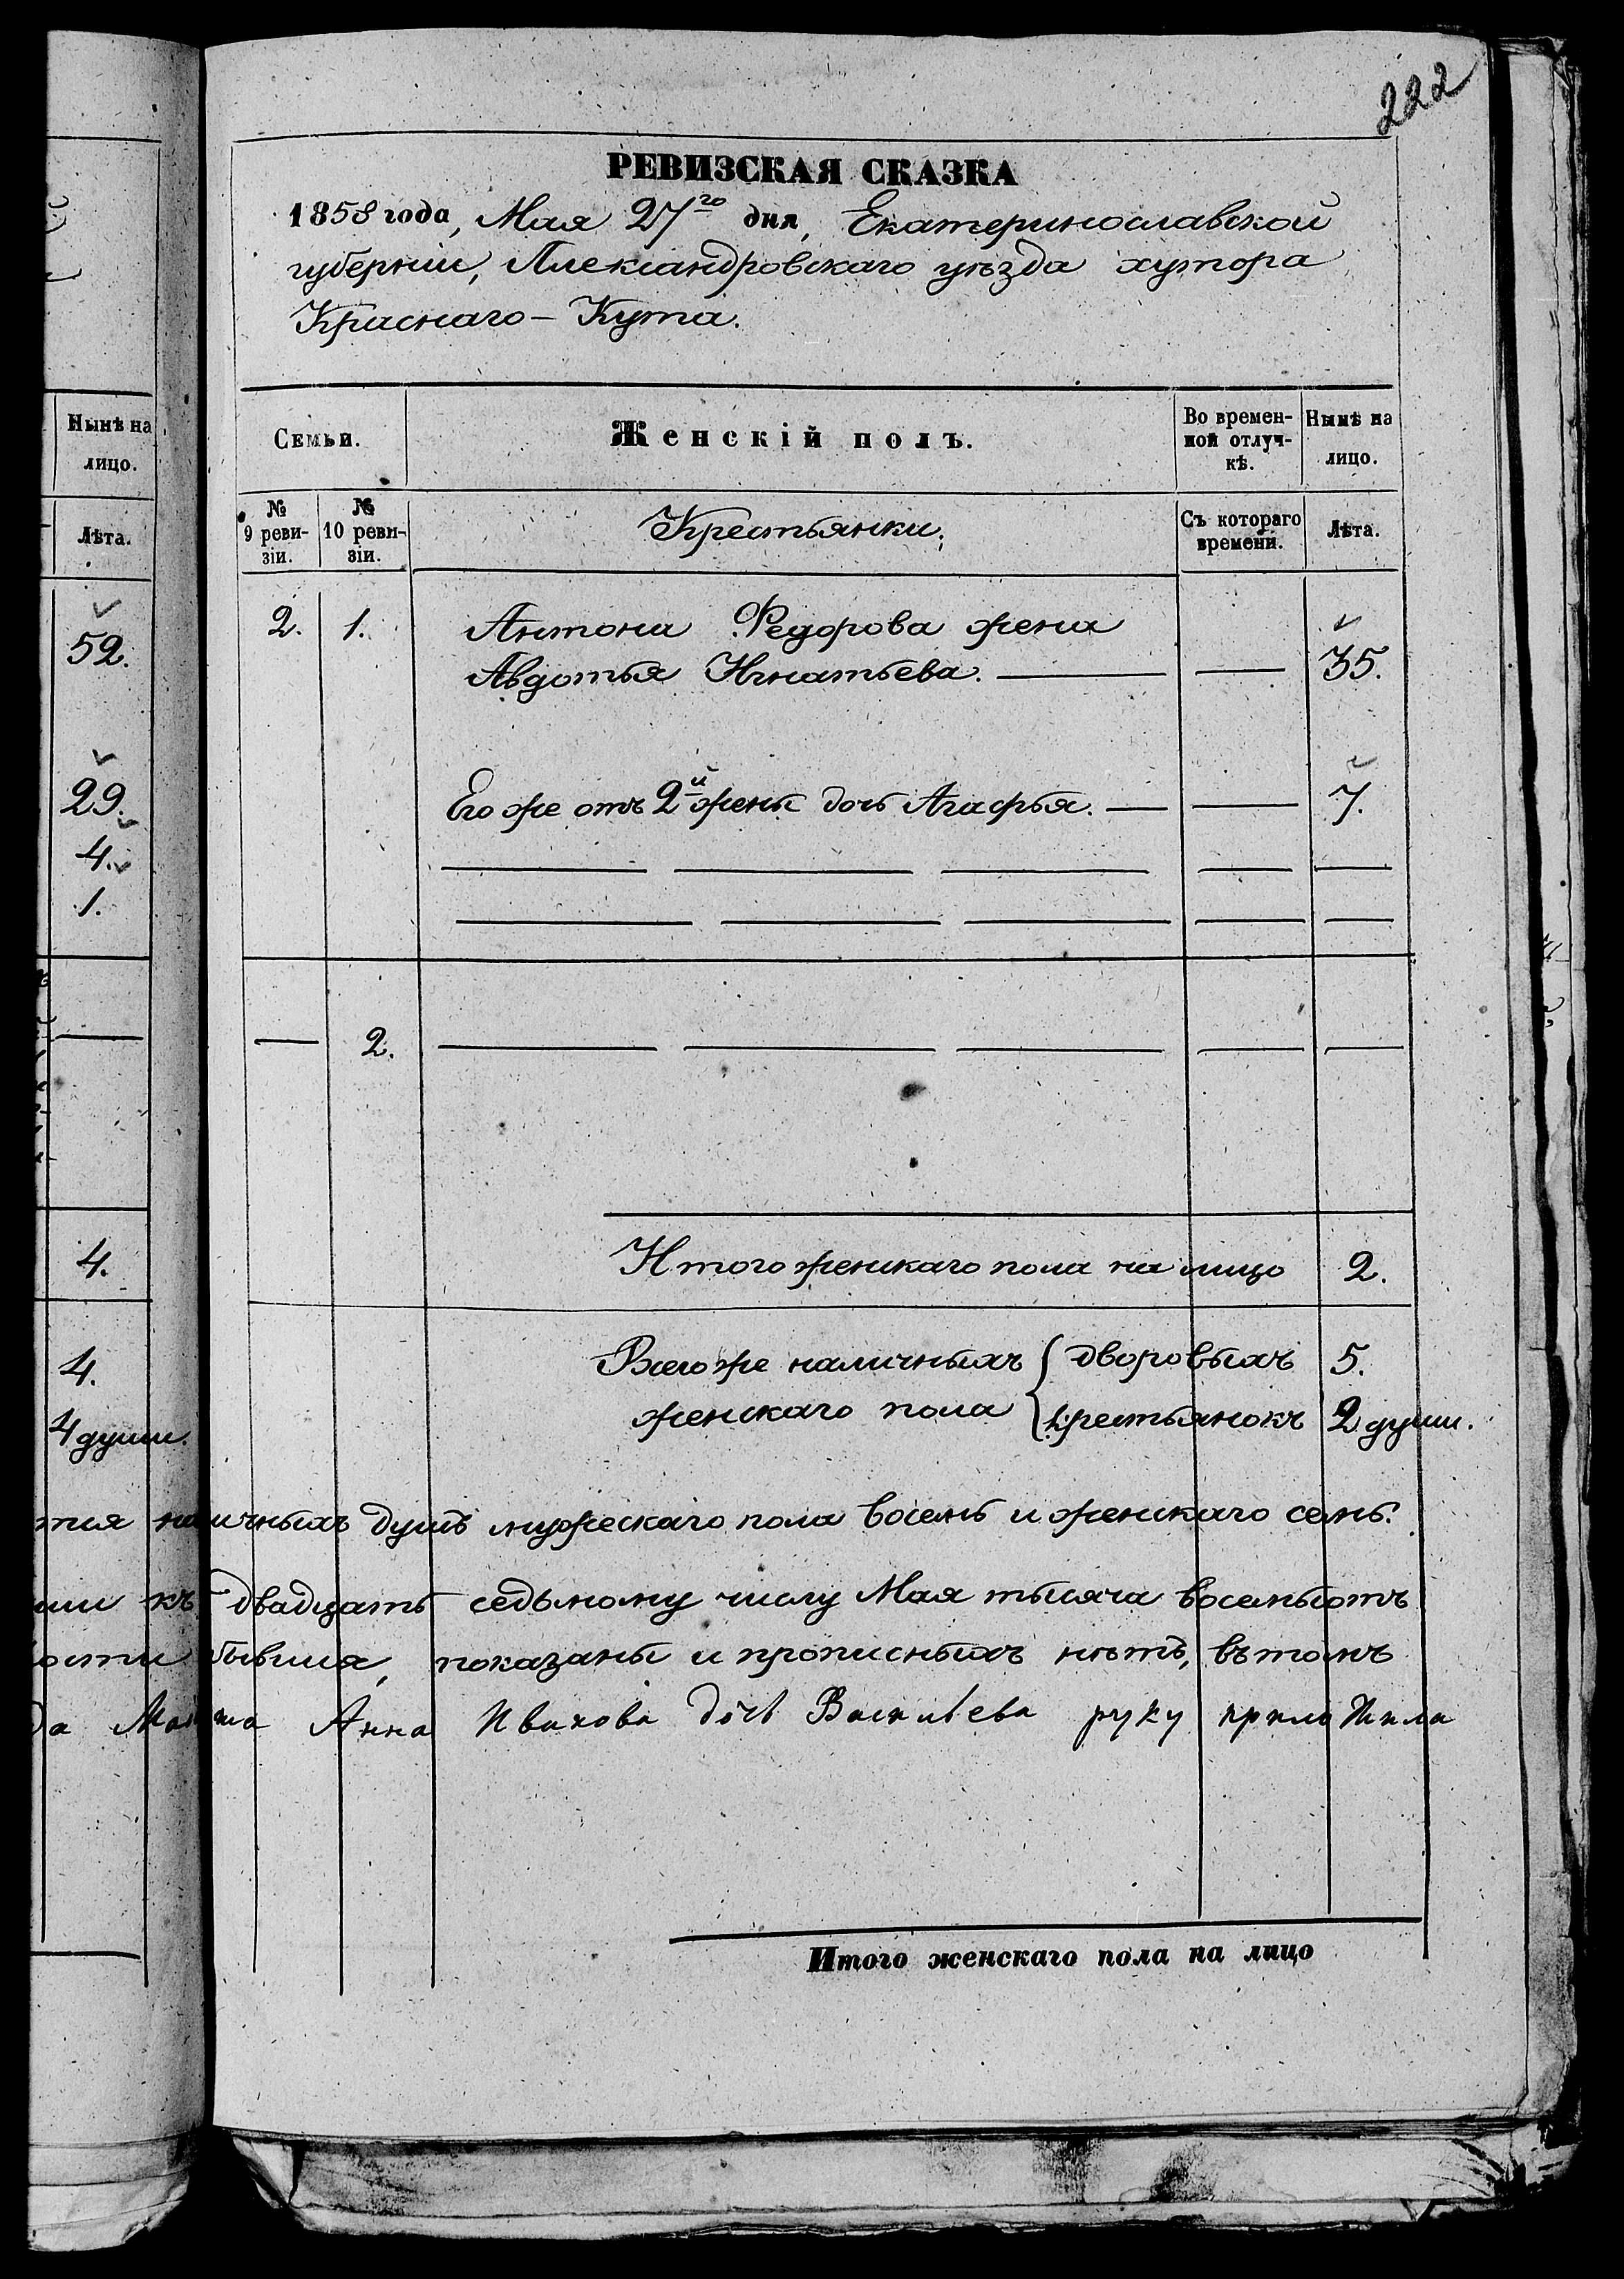 222
РЕВИЗСКАЯ СКАЗКА
1858 года, Мая 27го дня, Екатеринославской
губерніи, Александровскаго уѣзда хутора
Краснаго-Кута.
Нынѣ на лицо.
Лѣта.
52.
29.
4.
1.
4.
4.
4 души.
Семьи.
Женскій полъ.
Во времен-
ной отлуч-
кѣ.
Нынѣ на
лицо.
№
9 реви-
зіи.
№
10 реви-
зіи.
Крестьянки.
Съ котораго
времени.
Лѣта.
2. 1. Антона Федорова жена
Авдотья Игнатьева. — — 35.
Его же отъ 2й жены дочь Агафья. — — 7.
— 2. — — — — —
Итого женскаго пола на лицо 2.
Всего же наличныхъ { дворовыхъ 5.
женскаго пола { крестьянокъ 2 души.
наличныхъ душъ мужескаго пола восемь и женскаго семь.
къ двадцать седьмому числу Мая тысяча восемьсотъ
бывшія, показаны и прописныхъ нѣтъ, въ томъ
Анна Иванова дочь Васильева руку приложила
Итого женскаго пола на лицо